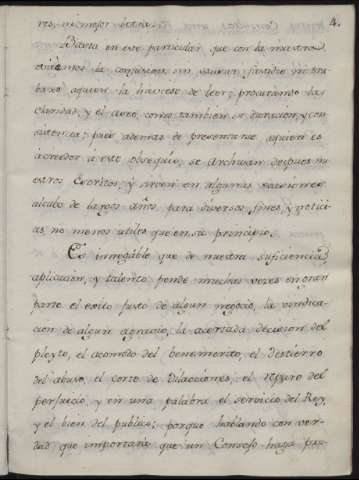 4.
res, ni mejor letra.
Basta en este particular que con la nuestra
evitemos la confusion, sin causar fastidio ni tra-
baxo aquien la huviese de leer; procurando la
claridad, y el aseo, como tambien su duracion, y con
sistencia; pues ademas de presentarse aquien es
acreedor a este obsequio, se Archivan despues nu
estros Escritos, y sirven en algunas ocasiones
alcabo de largos años para diversos fines, y notici
as, no menos utiles que en su principio.
Es innegable que de nuestra suficiencia
aplicacion, y talento pende muchas veces en gran
parte el exito justo de algun negocio, la vindica-
cion de algun agravio, la acertada decision del
pleyto, el acomodo del benemerito, el destierro
del abuso, el corte de Dilaciones, el reparo del
perjuicio, y en una palabra el servicio del Rey,
y el bien del publico; porque hablando con ver-
dad que importará que un Consejo haya